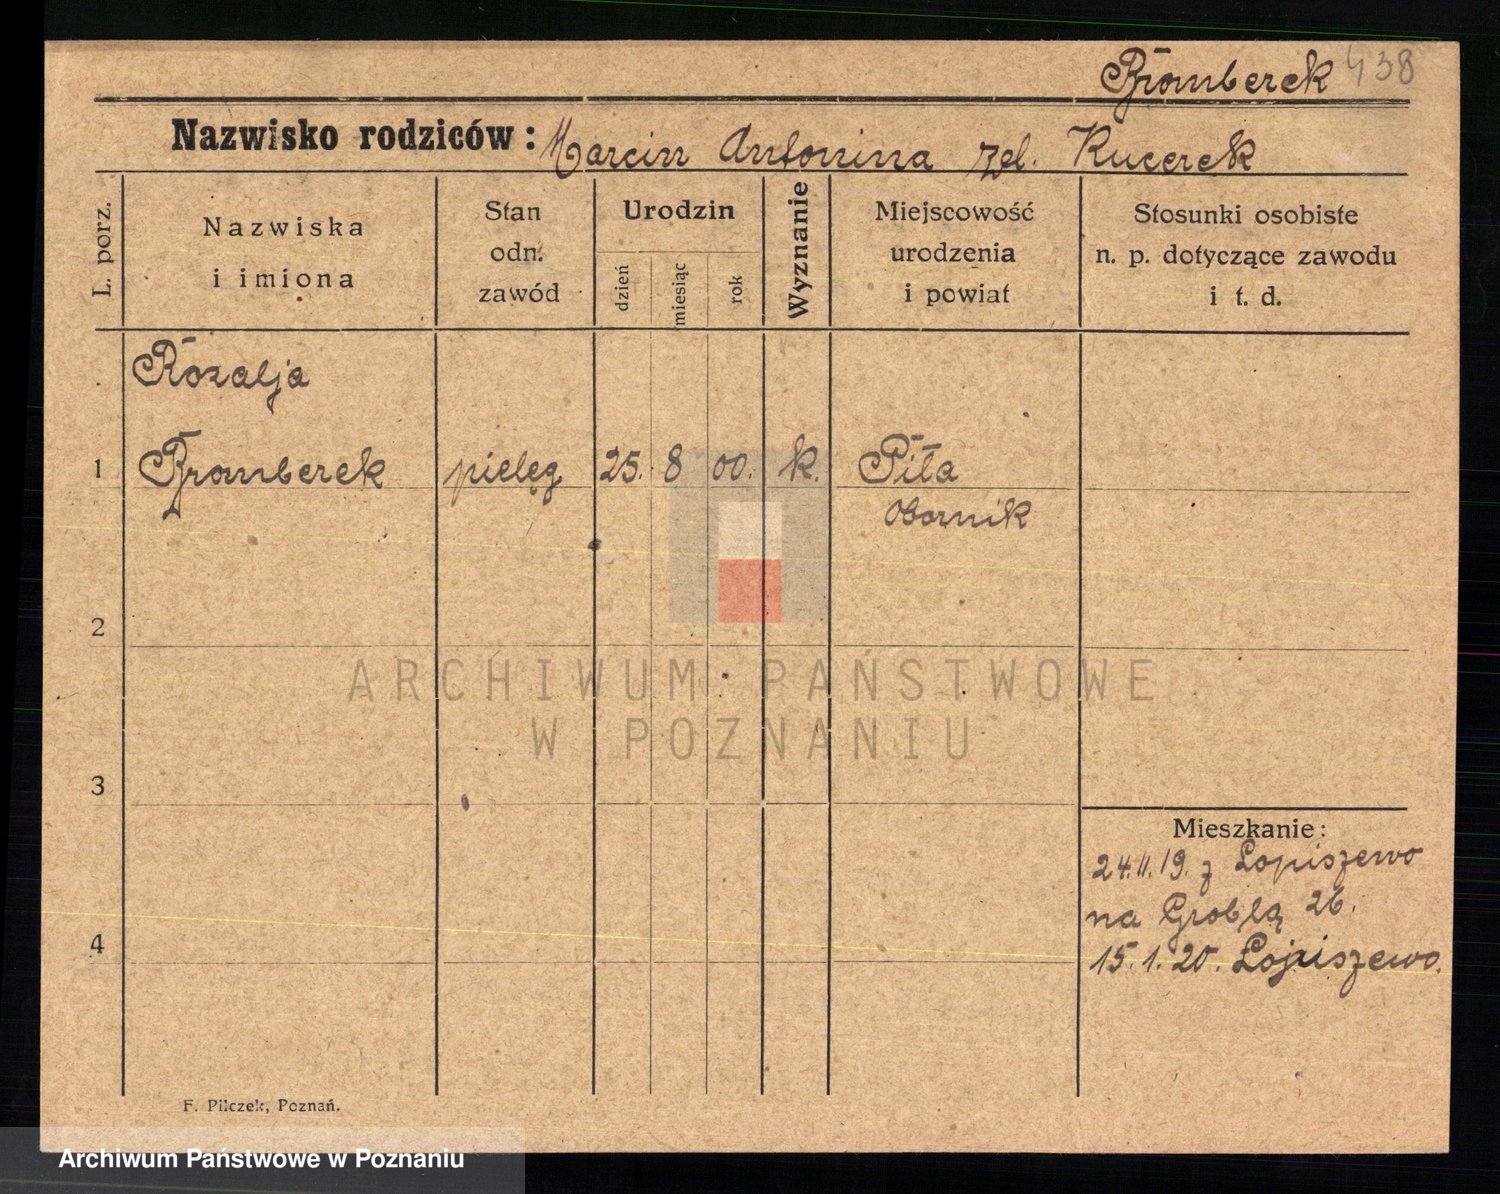 Bromberek 438
Nazwisko rodziców: Marcin Antonina zd. Kucerek
L. porz.
Nazwiska
i imiona
Stan
odn.
zawód
Urodzin
dzień
miesiąc
rok
Wyznanie
Miejscowość
urodzenia
i powiat
Stosunki osobiste
n. p. dotyczące zawodu
i t. d.
Rozalja
1 Bromberek pielęg 25. 8 00. k. Piła
Obornik
2
3
4
ARCHIWUM PAŃSTWOWE
W POZNANIU
Mieszkanie:
24.11.19. z Łopiszewo
na Groblą 26.
15.1.20. Łopiszewo.
F. Pilczek, Poznań.
Archiwum Państwowe w Poznaniu